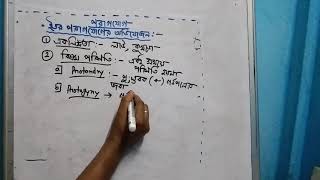 পরাগযোগ
ইতর পরাগযোগের অভিযোজন :
① একলিঙ্গতা :- লাউ, কুমড়ো
② বিষম পরিণতি :- একই সময়ে
পরিণত হয়না
ⓐ Protandry :- পুং স্তবক (←) গর্ভপত্রের
আগে
ⓑ Protogyny →